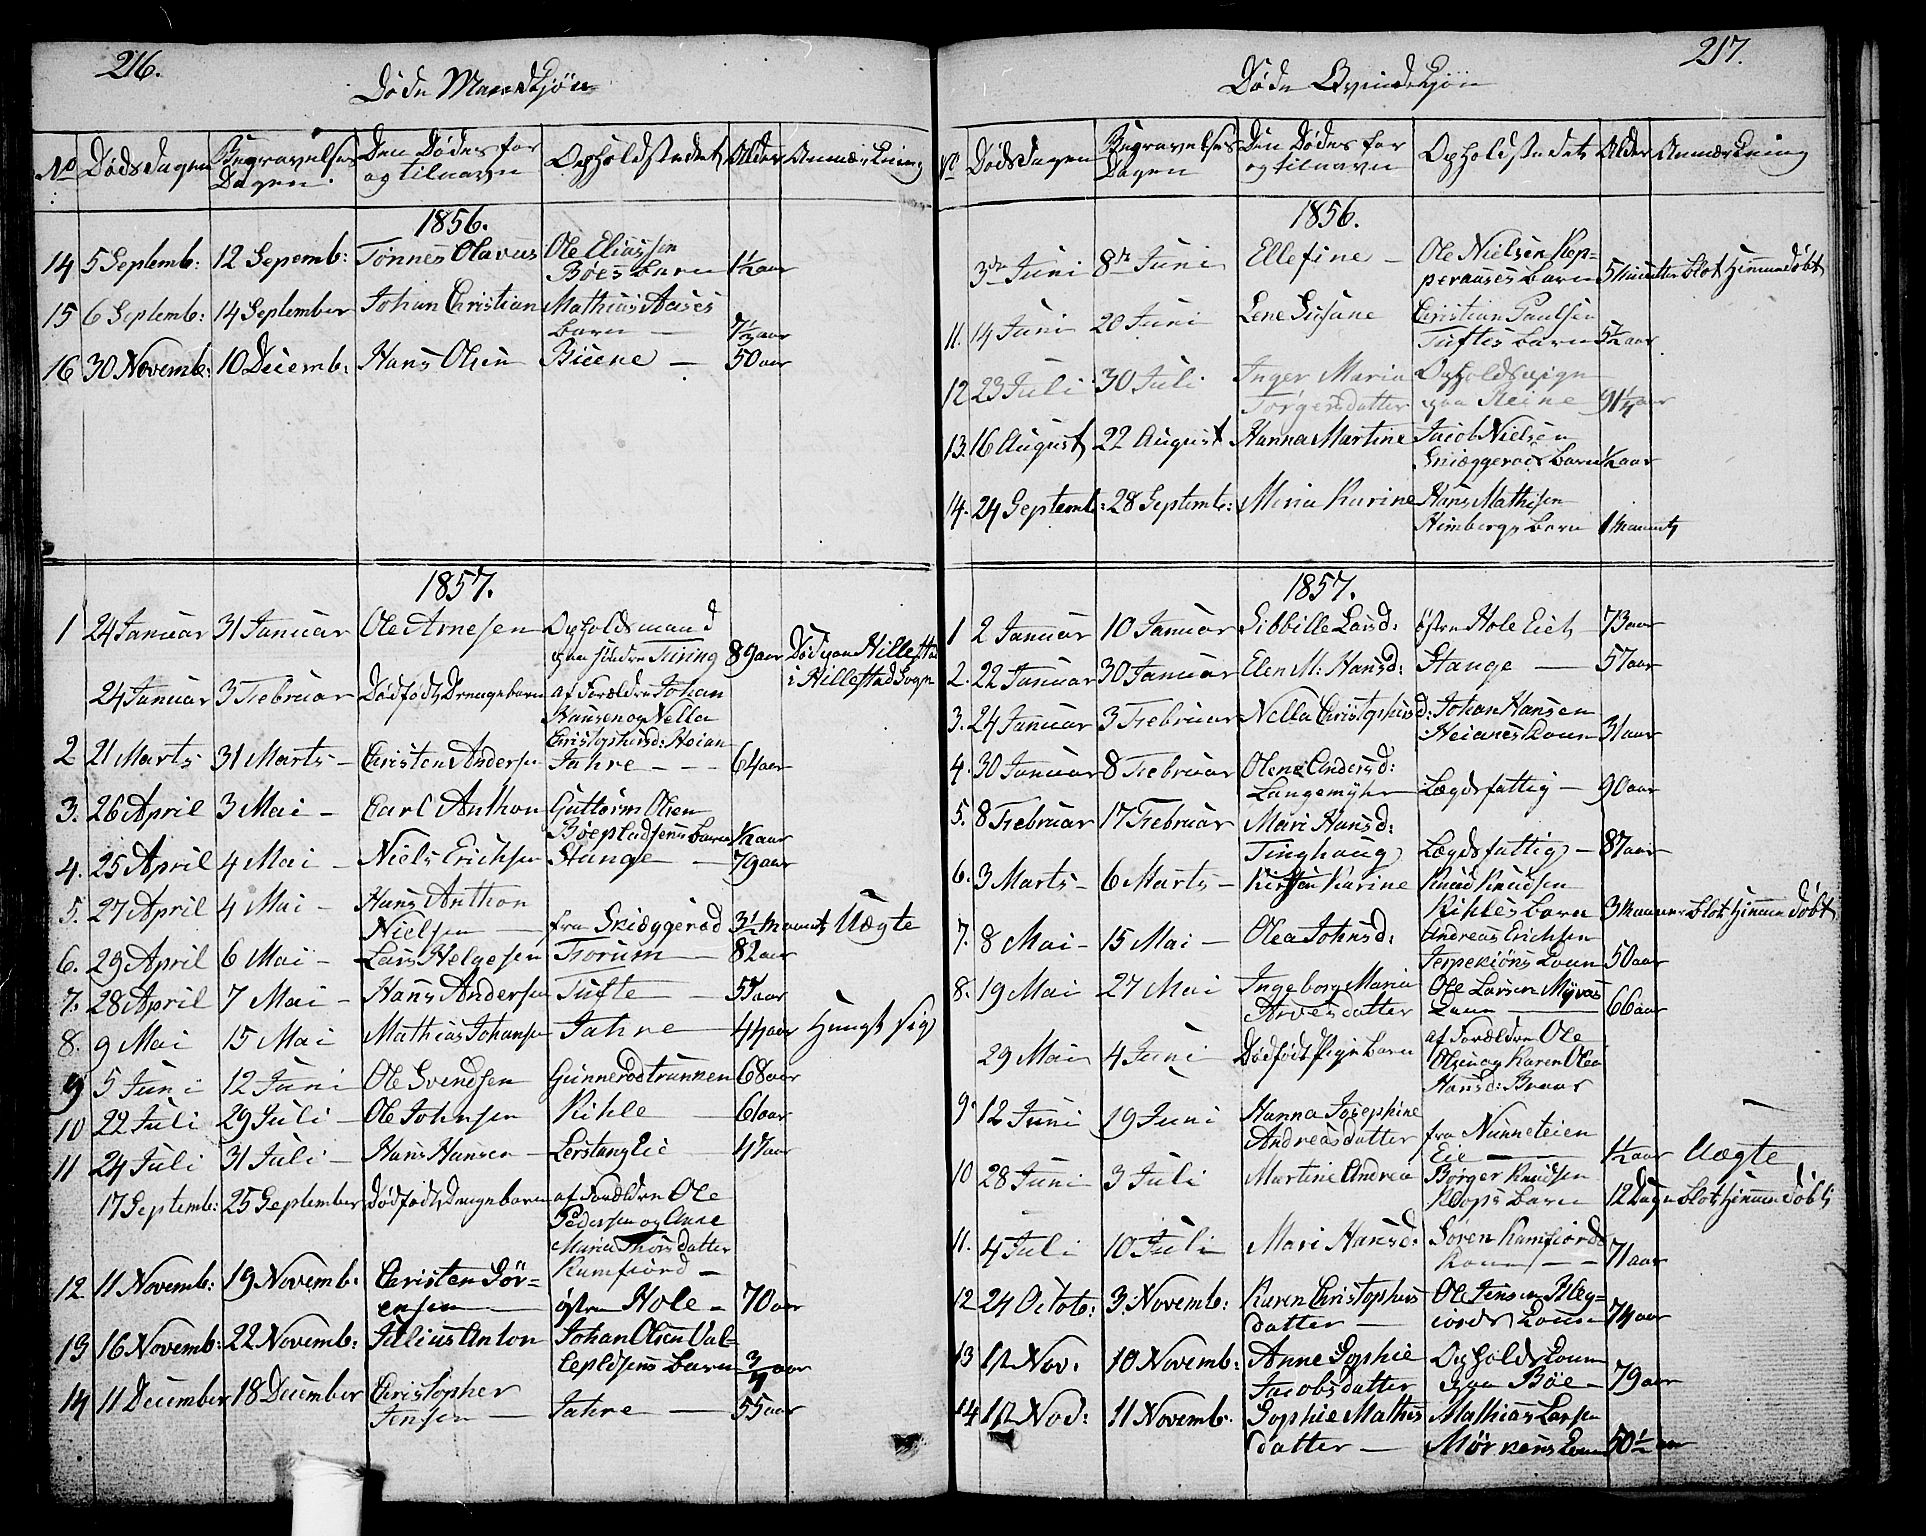 216.
Døde Mandkjøn
No Dødsdagen Begravelses Dagen. Den Dødes for og tilnavn Opholdstedet Alder Anmærkning
1856.
14 5 Septemb: 12 Sepemb: Tønnes Olavus Ole Eliassen
Bøes barn 1½ aar
15 6 Septemb: 14 September Johan Christian Mathias Aases
barn — 7½ aar
16 30 Novemb: 10 Decemb: Hans Olsen — 50 aar
1857.
1 24 Januar 31 Januar Ole Arnesen Opholdsmand
paa søndre Turing 89 aar Død paa Hillestad
i Hillestad Sogn
24 Januar 3 Februar Dødfødt Drengebarn af Forældre Johan
Hansen og Nella
Christophersd: Heian
2 21 Marts 31 Marts — Christen Andersen Jahre — — 64 aar
3. 26 April 3 Mai — Carl Anthon Guttorm Olsen
Bøepladsens barn ½ aar
4. 25 April 4 Mai — Niels Erichsen Stange — 79 aar
5. 27 April 4 Mai — Hans Anthon
Nielsen — fra Skiæggerød 3½ Maanet Uægte
6. 29 April 6 Mai — Lars Helgesen Forum — 82 aar
7. 28 April 7 Mai — Hans Andersen Tufte — aar
8. 9 Mai 15 Mai Mathias Johansen Jahre — 44 aar Hengt sig
9 5 Juni 12 Juni Ole Svendsen Gunnerødtrannen 68 aar
10 22 Juli 29 Juli — Ole Johnsen Kihle — 61 aar
11 24 Juli 31 Juli — Hans Hansen — Lerstang Eie — aar
17 Septemb: 25 September Dødfødt Drengebarn af Forældre Ole
Pedersen og Anne
Maria Thorsdatter
Ramfiord —
12 11 Novemb: 19 Novemb: Christen Sør=
ensen — østre Hole — 70 aar
13 16 Novemb: 22 Novemb: Julius Anton Johan Olsen Val=
lepldsens barn ¾ aar
14 11 December 18 December Christopher
Jensen — Jahre — 55 aar
217.
Døde Qvindekjøn
No Dødsdagen Begravelses Dagen Den Dødes for og tilnavn Opholdstedet Alder Anmærkning
1856.
3de Juni 8de Juni Ellefine — Ole Nielsen Kop=
peraases barn 5 Minutter blot Hjemmedøbt
11. 14 Juni 20 Juni Lene Susane Christian Paulsen
Tuftes barn 5½ aar
12 23 Juli 30 Juli Inger Maria Opholdspige
Torgersdatter paa Steine 91¼ aar
13. 16 August 22 August Hanna Martine Jacob Nielsen
Skiæggerøds barn ½ aar
14. 24 Septemb: 28 Septemb: Maria Karine Hans Mathisen
Himbergs barn 1 Maanet
1857.
1 2 Januar 10 Januar Sibbille Larsd: østre Hole Eiet — 73 aar
2. 22 Januar 30 Januar Elen M: Hansd: Stange — 57 aar
3. 24 Januar 3 Februar Nella Christophersd: Johan Hansen
Heianes Kone 31 aar
4. 30 Januar 8 Februar Olene Andersd:
Langemyhr Lægdsfattig — 90 aar
5. 8 Februar 17 Februar Mari Hansd:
Tinghaug Lægdsfattig — 87 aar
6. 3 Marts — 6 Marts — Kirstin Karine Knud Knudsen
Kihles barn 3 Maaneder blot Hjemmedøbt
7. 8 Mai — 15 Mai — Olea Johnsd: Andreas Erichsen
Kone 50 aar
8. 19 Mai 27 Mai Ingeborg Maria Ole Larsen Myras
Arvesdatter Kone — 66 aar
29 Mai 4 Juni Dødfødt Pigebarn af Forældre Ole
Olsen og Karen Olea
Hansd: Braar
9. 12 Juni 19 Juni Hanna Josephine
Andreasdatter fra Nunneteien
Eie — 1½ aar Uægte
10 28 Juni 3 Juli Martine Andrea Børger Knudsen
Klops barn 12 Dage blot Hjemmedøbt
11. 4 Juli 10 Juli Mari Hansd: Søren Ramfiords
Kone — — 71 aar
12 24 Octob: 3. Novemb: Karen Christophers Ole Jensen Kleg=
datter — iords Kone 74 aar
13 1ste Nov. 10 Novemb: Anne Sophie Opholdskone
Jacobsdatter paa Bøe — 79 aar
14 1ste Nov: 11 Novemb: Sophie Mathis Mathias Larsen
datter — Mørkens Kone 50½ aar